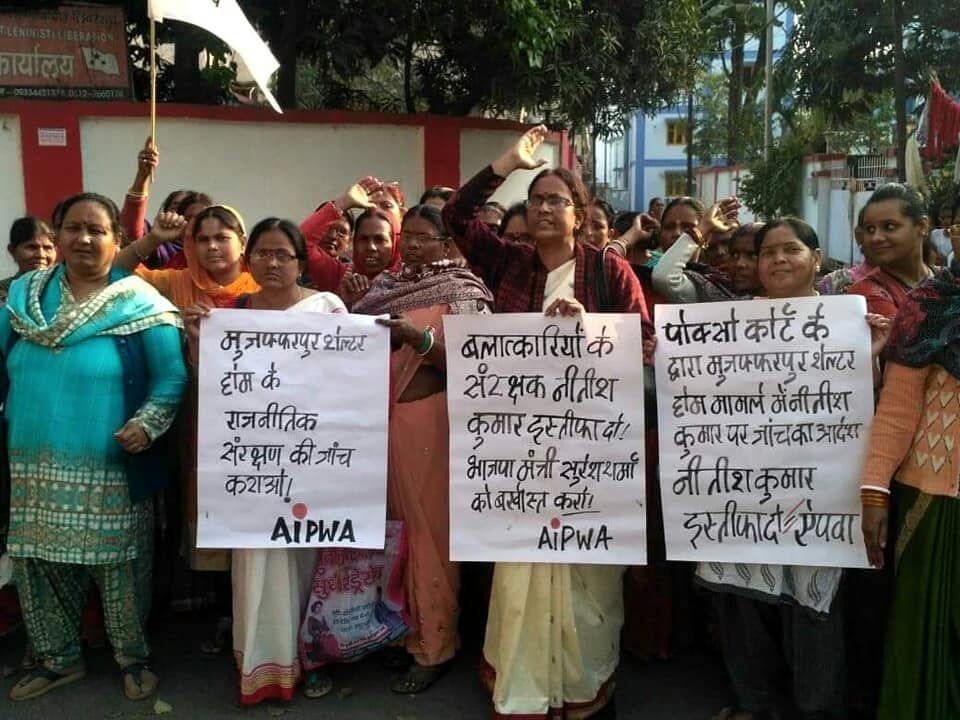 LENINIST) LIBERATION
कार्यालय
मुजफ्फरपुर शेल्टर
होम के
राजनीतिक
संरक्षण की जांच
कराओ!
AIPWA
बलात्कारियों के
संरक्षक नीतीश
कुमार इस्तीफा दो!
भाजपा मंत्री सुरेश शर्मा
को बर्खास्त करो!
AIPWA
पोक्सो कोर्ट के
द्वारा मुजफ्फरपुर शेल्टर
होम मामले में नीतीश
कुमार पर जांच का आदेश
नीतीश कुमार
इस्तीफा दो = ऐपवा